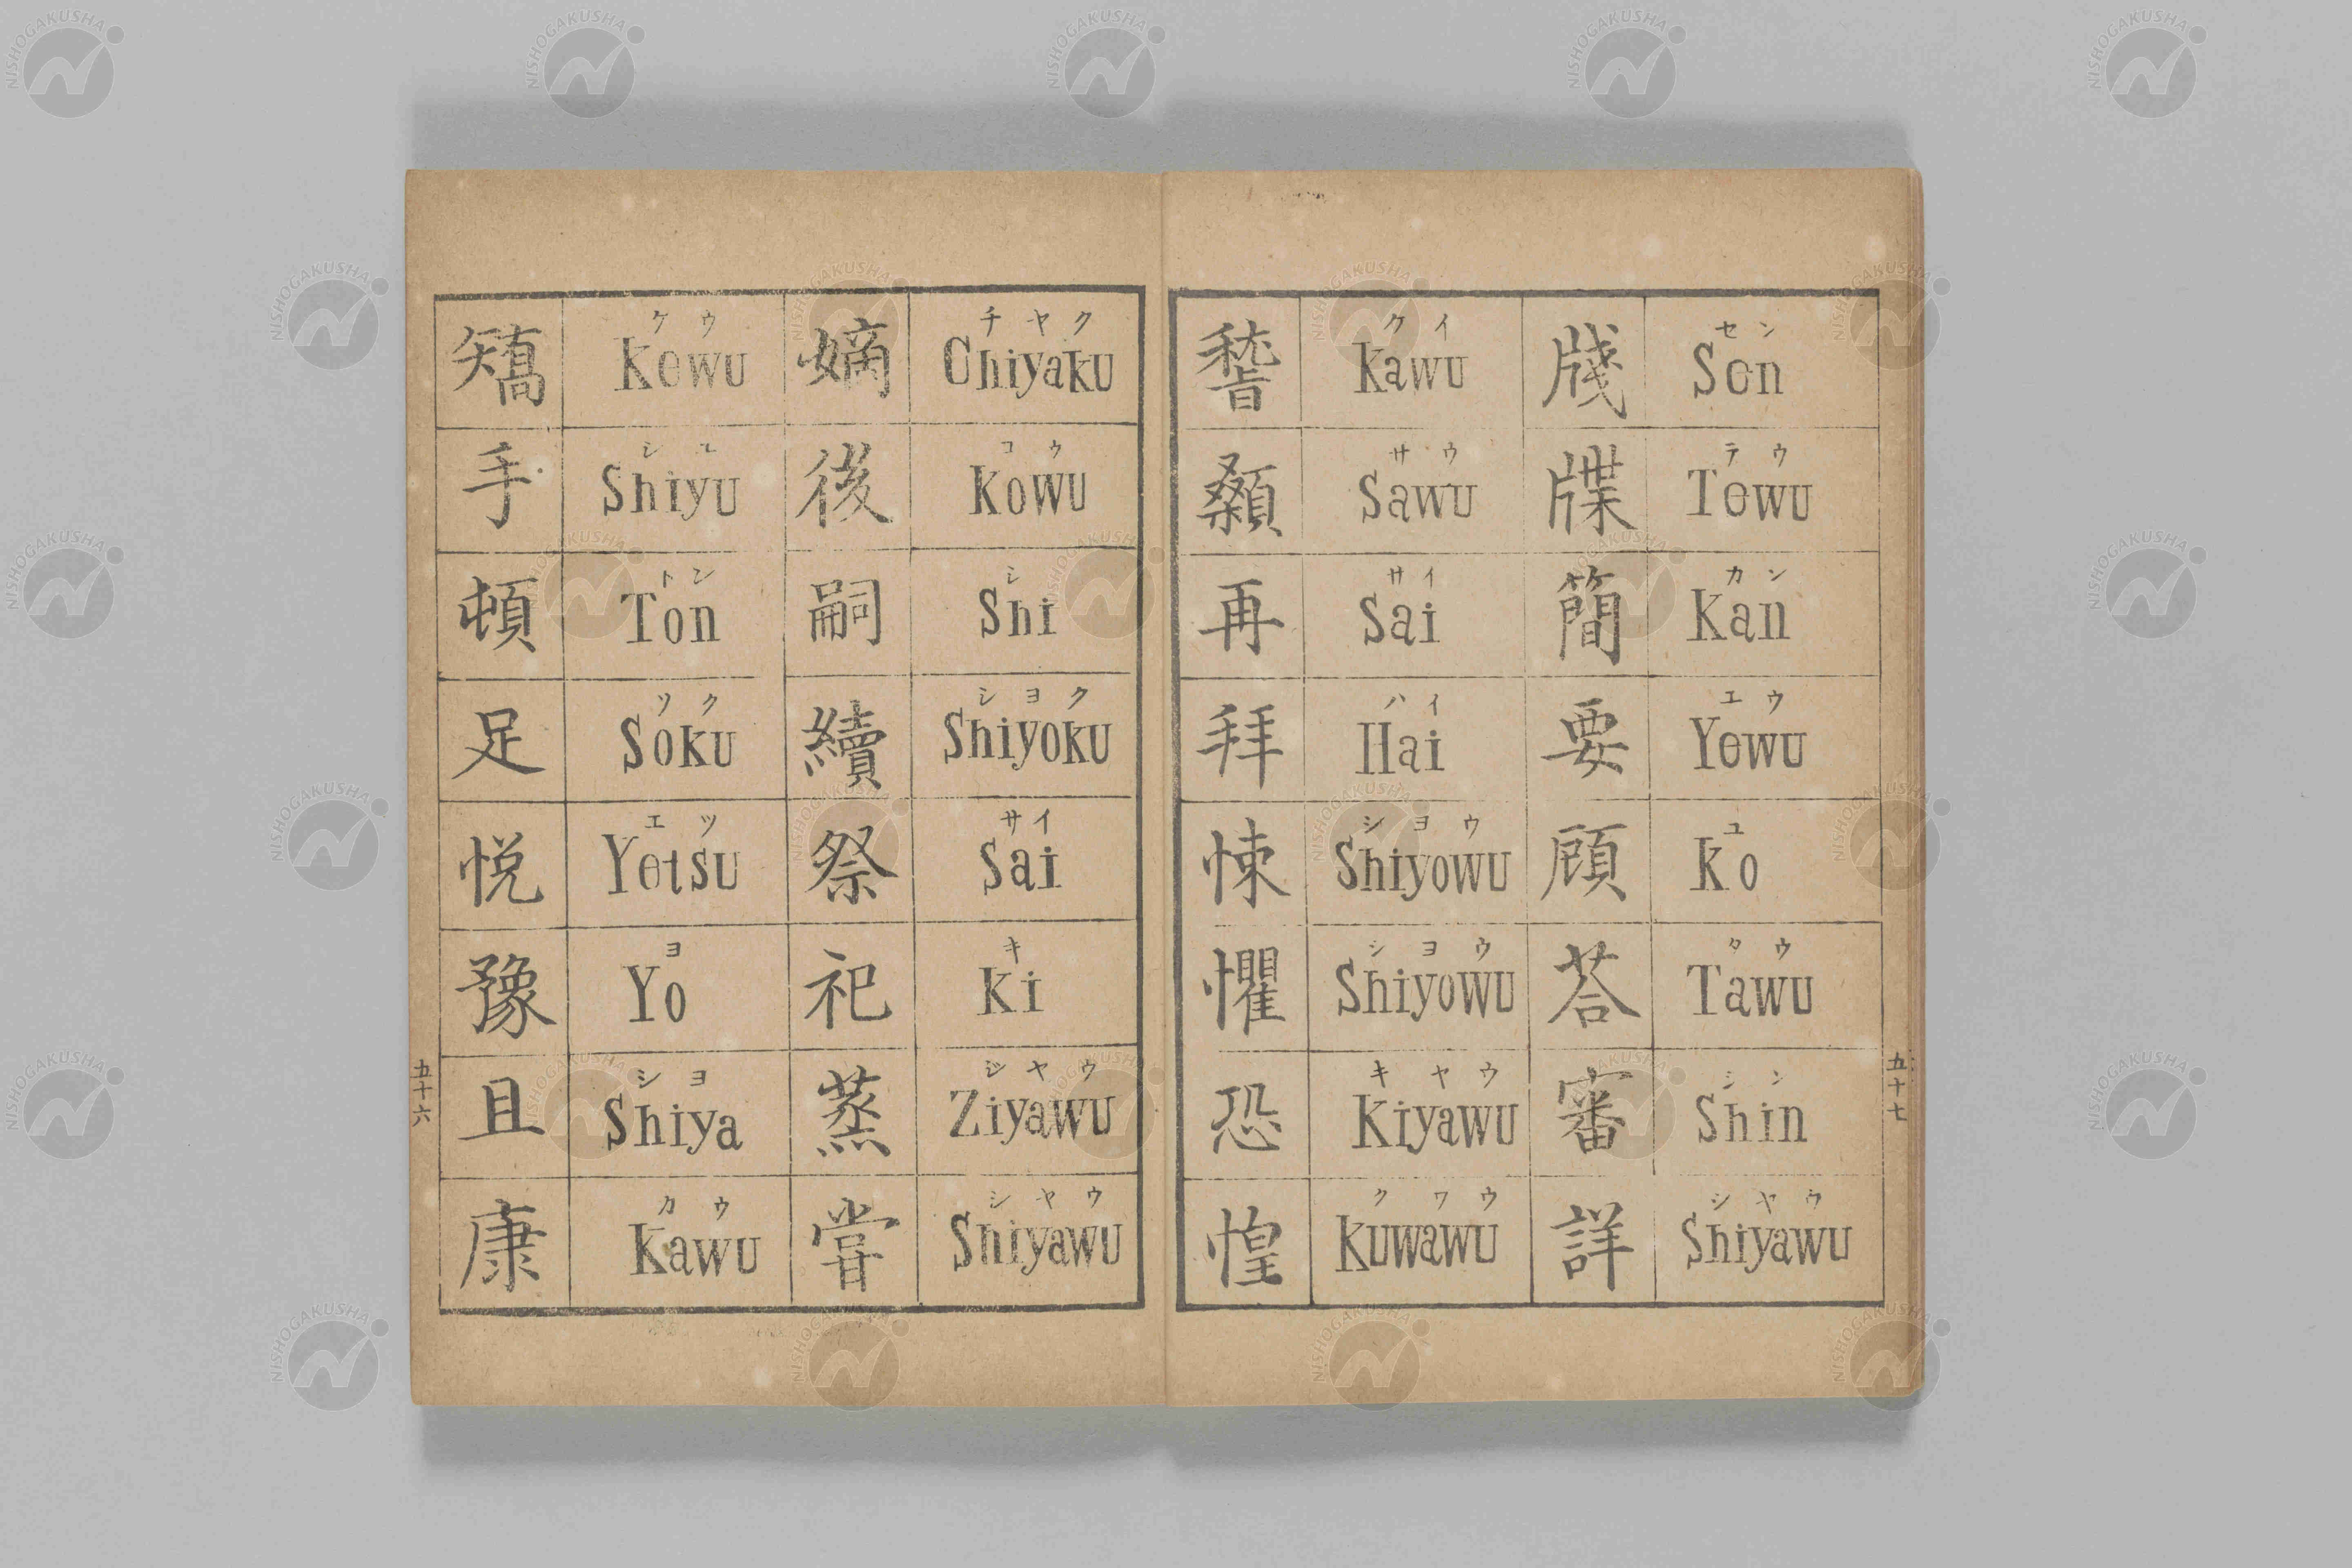 矯 ケウ Kewu
手 シユ Shiyu
頓 トン Ton
足 ソク Soku
悦 エツ Yetsu
豫 ヨ Yo
且 シヨ Shiya
康 カウ Kawu
五十六
嫡 チヤク Chiyaku
後 コウ Kowu
嗣 シ Shi
續 シヨク Shiyoku
祭 サイ Sai
祀 キ Ki
蒸 ジヤウ Ziyawu
甞 シヤウ Shiyawu
稽 ケイ Kawu
顙 サウ Sawu
再 サイ Sai
拜 ハイ Hai
悚 シヨウ Shiyowu
懼 シヨウ Shiyowu
恐 キヤウ Kiyawu
惶 クワウ Kuwawu
牋 セン Sen
牒 テウ Tewu
簡 カン Kan
要 エウ Yewu
顧 コ Ko
荅 タウ Tawu
審 シン Shin
詳 シヤウ Shiyawu
五十七
NISHOGAKUSHA